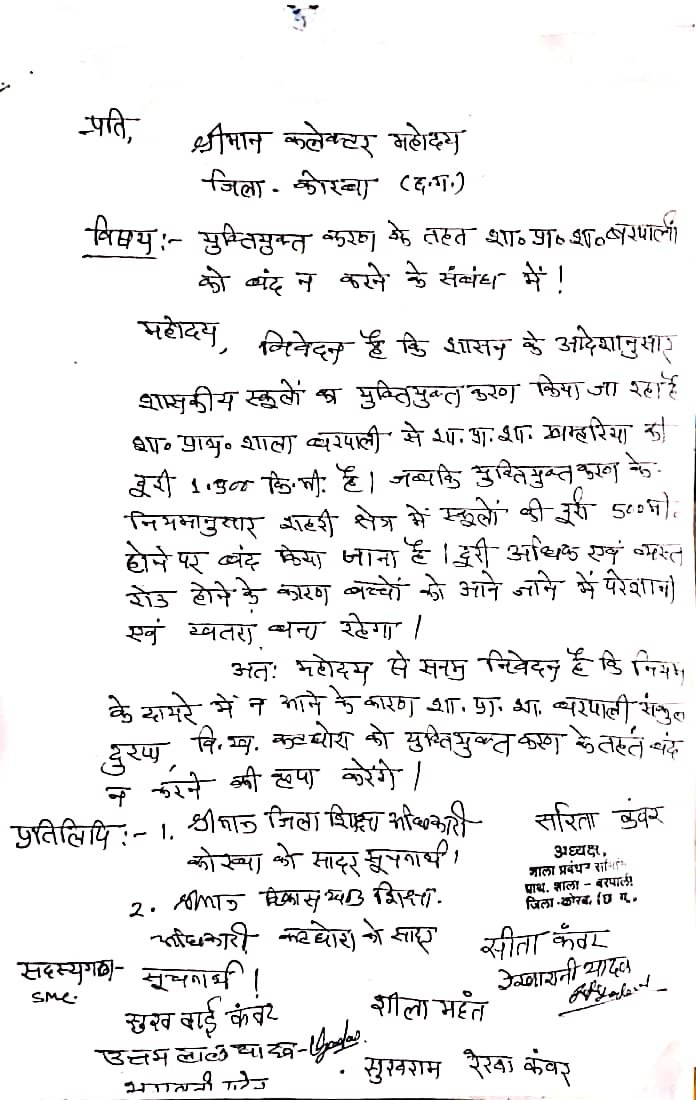 प्रति,
श्रीमान कलेक्टर महोदय
जिला - कोरबा (छ.ग.)
विषय :- युक्तियुक्त करण के तहत शा॰ प्रा॰ शा॰ बरपाली
को बंद न करने के संबंध में !
महोदय,
निवेदन है कि शासन के आदेशानुसार
शासकीय स्कूलों का युक्तियुक्त करण किया जा रहा है
शा॰ प्राथ॰ शाला बरपाली से शा. प्रा. शा. खम्हरिया की
दूरी 1.900 कि.मी. है । जबकि युक्तियुक्त करण के
नियमानुसार शहरी क्षेत्र में स्कूलों की दूरी 500 मी.
होने पर बंद किया जाना है । दूरी अधिक एवं व्यस्त
रोड होने के कारण बच्चों को आने जाने में परेशानी
एवं खतरा बना रहेगा ।
अतः महोदय से सनम्र निवेदन है कि नियम
के दायरे में न आने के कारण शा. प्रा. शा. बरपाली संकुल
दुरपा, वि.ख. कटघोरा को युक्तियुक्त करण के तहत बंद
न करने की कृपा करेंगे ।
प्रतिलिपि :- 1. श्रीमान जिला शिक्षा अधिकारी
कोरबा को सादर सूचनार्थ ।
सरिता कंवर
अध्यक्ष,
शाला प्रबंधन समिति
प्राथ. शाला - बरपाली
जिला-कोरबा, छ ग.
2. श्रीमान विकास खण्ड शिक्षा.
अधिकारी कटघोरा को सादर
सूचनार्थ ।
सीता कँवर
रेखारानी यादव
सदस्यगण-
SMC.
सुख बाई कंवर
शीला महंत
उत्तम लाल यादव - Yadav
सुखराम रेखा कंवर